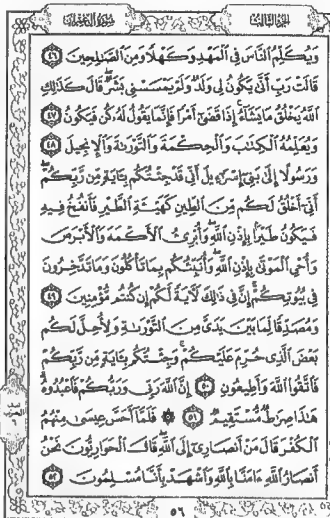 الجزء الثالث
سورة آل عمران
وَيُكَلِّمُ النَّاسَ فِي الْمَهْدِ وَكَهْلًا وَمِنَ الصَّالِحِينَ ٤٦
قَالَتْ رَبِّ أَنَّى يَكُونُ لِي وَلَدٌ وَلَمْ يَمْسَسْنِي بَشَرٌ قَالَ كَذَلِكِ
اللَّهُ يَخْلُقُ مَا يَشَاءُ إِذَا قَضَى أَمْرًا فَإِنَّمَا يَقُولُ لَهُ كُنْ فَيَكُونُ ٤٧
وَيُعَلِّمُهُ الْكِتَابَ وَالْحِكْمَةَ وَالتَّوْرَاةَ وَالْإِنْجِيلَ ٤٨
وَرَسُولًا إِلَى بَنِي إِسْرَائِيلَ أَنِّي قَدْ جِئْتُكُمْ بِآيَةٍ مِنْ رَبِّكُمْ
أَنِّي أَخْلُقُ لَكُمْ مِنَ الطِّينِ كَهَيْئَةِ الطَّيْرِ فَأَنْفُخُ فِيهِ
فَيَكُونُ طَيْرًا بِإِذْنِ اللَّهِ وَأُبْرِئُ الْأَكْمَهَ وَالْأَبْرَصَ
وَأُحْيِ الْمَوْتَى بِإِذْنِ اللَّهِ وَأُنَبِّئُكُمْ بِمَا تَأْكُلُونَ وَمَا تَدَّخِرُونَ
فِي بُيُوتِكُمْ إِنَّ فِي ذَلِكَ لَآيَةً لَكُمْ إِنْ كُنْتُمْ مُؤْمِنِينَ ٤٩
وَمُصَدِّقًا لِمَا بَيْنَ يَدَيَّ مِنَ التَّوْرَاةِ وَلِأُحِلَّ لَكُمْ
بَعْضَ الَّذِي حُرِّمَ عَلَيْكُمْ وَجِئْتُكُمْ بِآيَةٍ مِنْ رَبِّكُمْ
فَاتَّقُوا اللَّهَ وَأَطِيعُونِ ٥٠ إِنَّ اللَّهَ رَبِّي وَرَبُّكُمْ فَاعْبُدُوهُ
هَذَا صِرَاطٌ مُسْتَقِيمٌ ٥١ فَلَمَّا أَحَسَّ عِيسَى مِنْهُمُ
الْكُفْرَ قَالَ مَنْ أَنْصَارِي إِلَى اللَّهِ قَالَ الْحَوَارِيُّونَ نَحْنُ
أَنْصَارُ اللَّهِ آمَنَّا بِاللَّهِ وَاشْهَدْ بِأَنَّا مُسْلِمُونَ ٥٢
٥٦